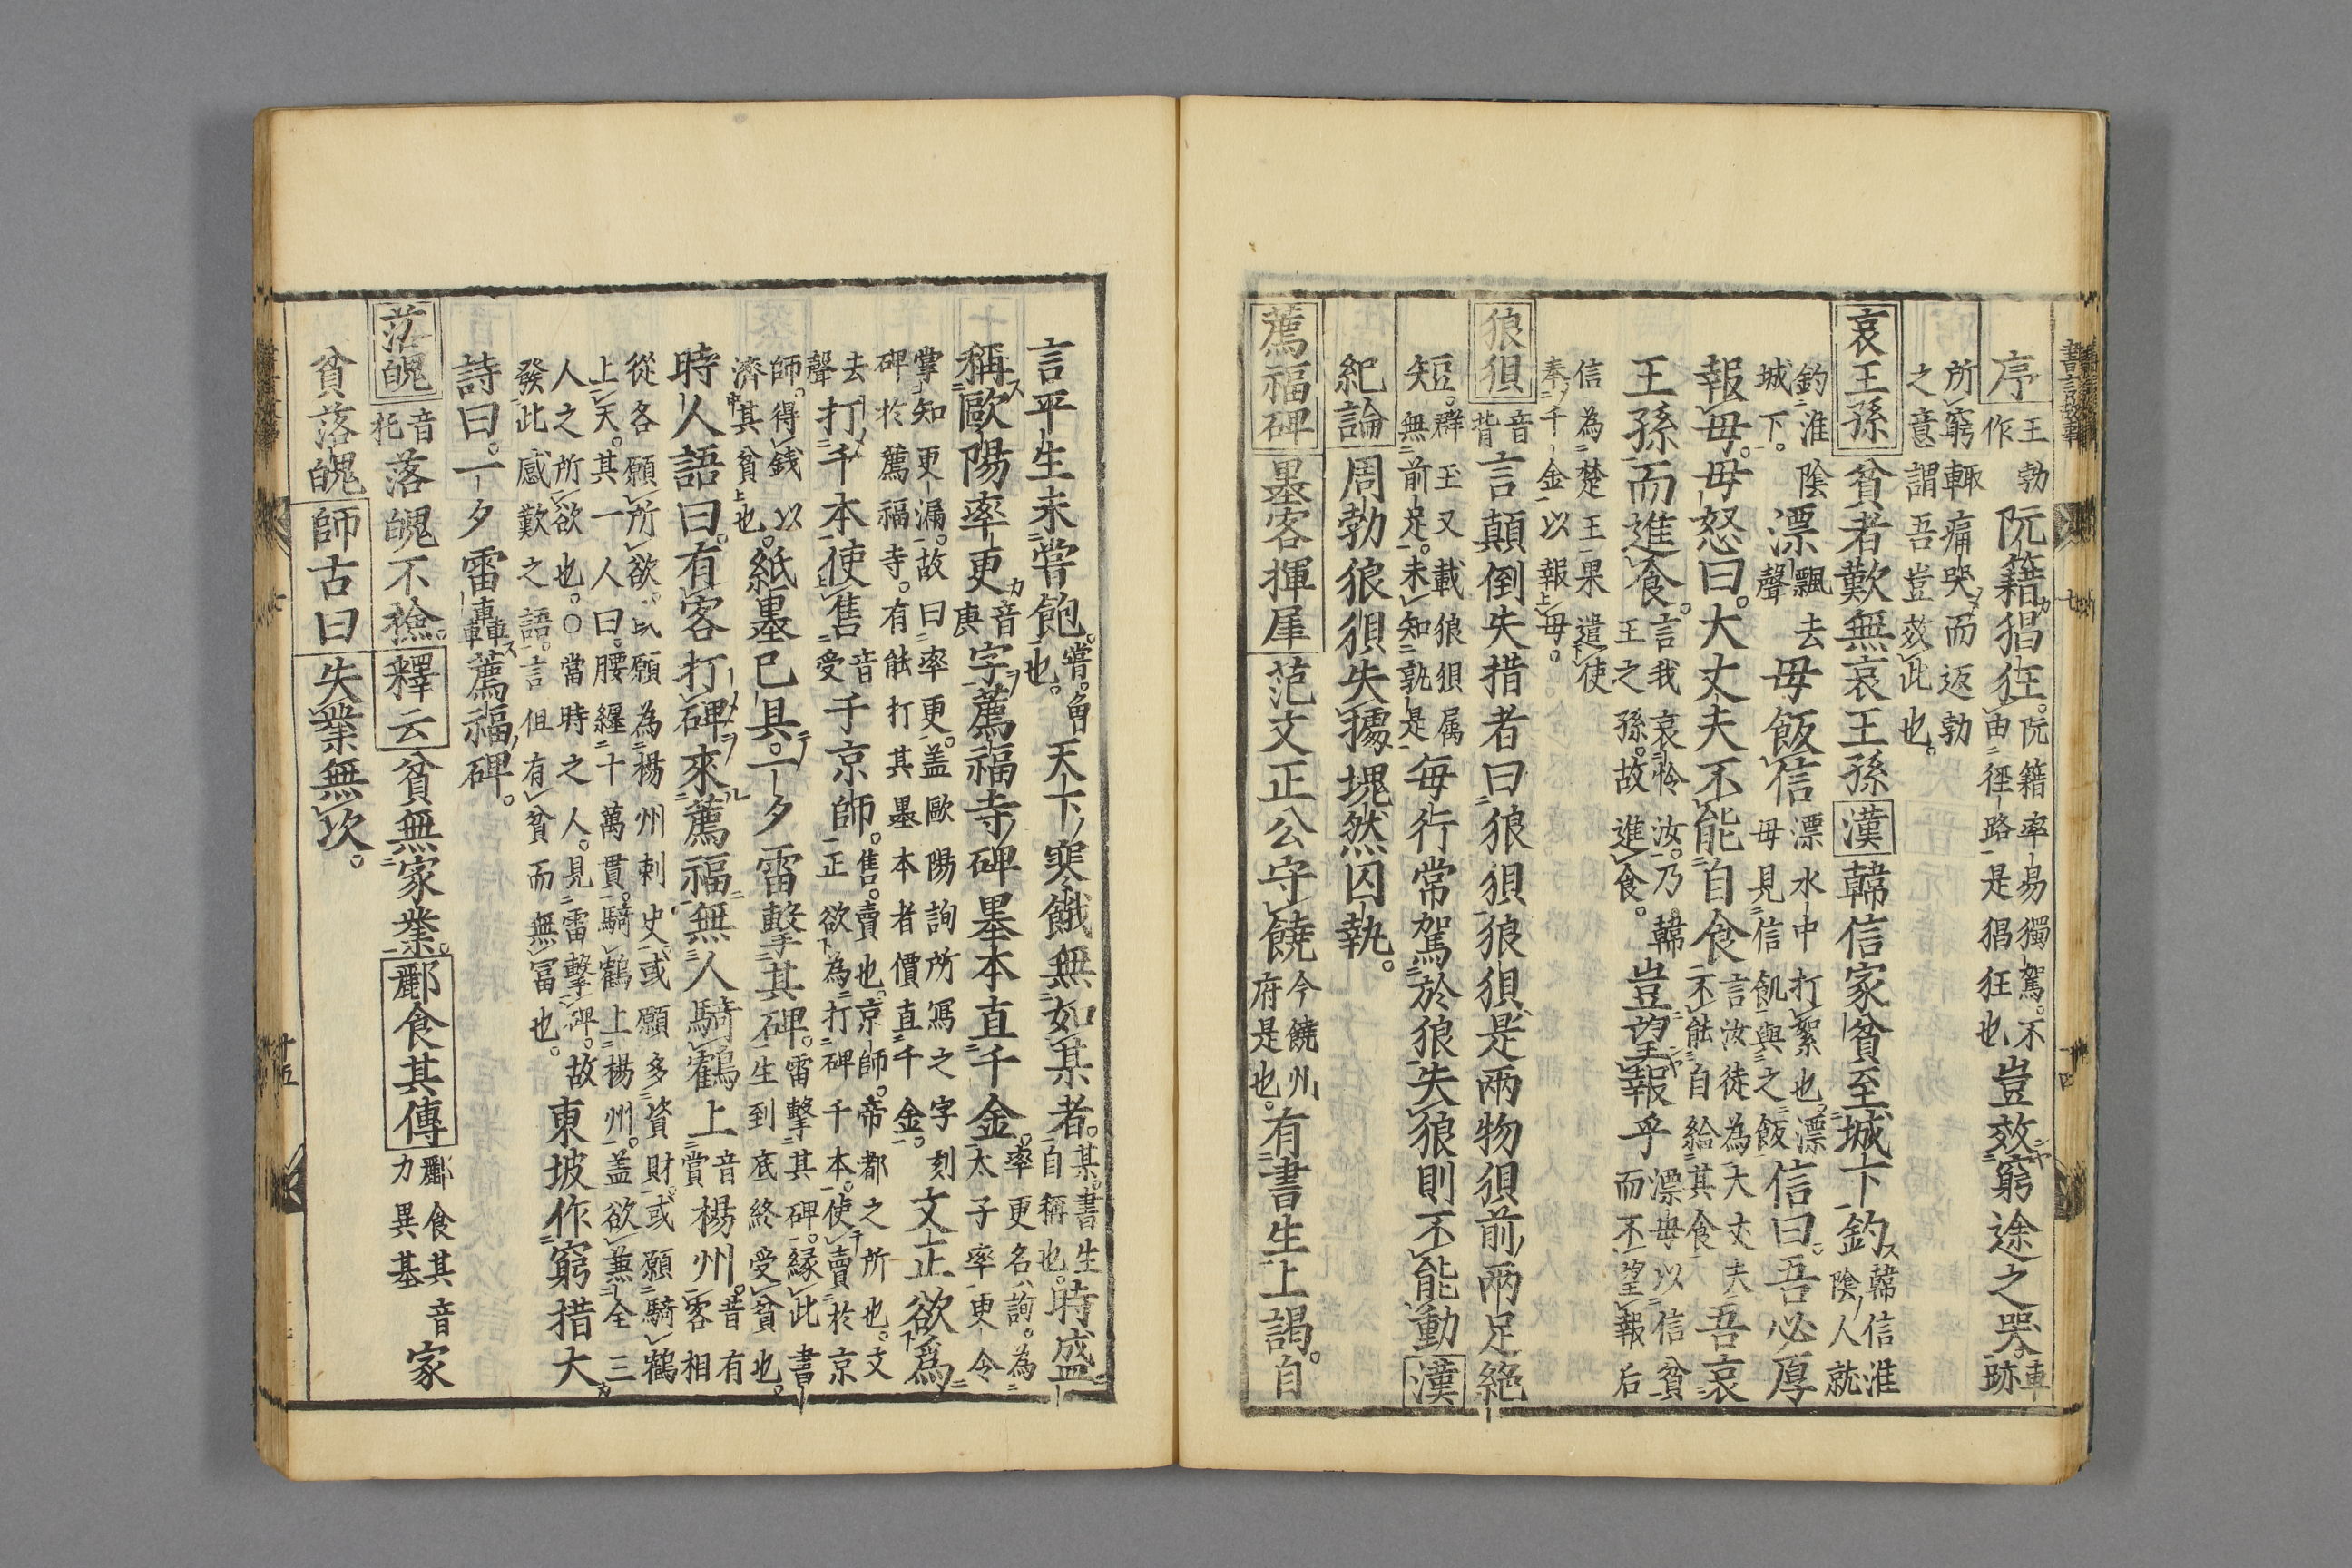 序王勃作阮籍猖狂阮籍率易獨駕不由徑路是猖狂也豈效窮途之哭車跡
所窮輙痛哭而返勃之意謂吾豈效此也
哀王孫貧者歎無哀王孫漢韓信家貧至城下釣韓信淮陰人就
釣淮陰城下漂飄去聲母飯信漂水中打絮也漂母見信飢與之飯信曰吾必厚
報母母怒曰大丈夫不能自食言汝徒為大丈夫不能自給其食吾哀
王孫而進食言我哀怜汝乃韓王之孫故進食豈望報乎漂母以信貧而不望報后
信為楚王果遣使奉千金以報母
狼狽音背言顛倒失措者曰狼狽狼狽是兩物狽前兩足絕
短群玉又載狼狽属無前足未知孰是每行常駕於狼失狼則不能動漢
紀論周勃狼狽失據塊然囚執
薦福碑墨客揮犀范文正公守饒今饒州府是也有書生上謁自
言平生未嘗飽嘗曾也天下寒餓無如某者某書生自稱也時盛
稱歐陽率更音庚字薦福寺碑墨本直千金率更名詢為太子率更令
掌知更漏故曰率更盖歐陽詢所寫之字刻碑於薦福寺有能打其墨本者價直千金文正欲為
去聲打千本使售音受于京師售賣也京師帝都之所也文正欲為打碑千本使賣於京
師得錢以濟其貧也紙墨已具一夕雷擊其碑雷擊其碑緣此書生到底終受貧也
時人語曰有客打碑來薦福無人騎鶴上音賞楊州昔有客相
從各願所欲或願為楊州刺史或願多資財或願騎鶴上天其一人曰腰纏十萬貫騎鶴上楊州盖欲兼全三
人之所欲也○當時之人見雷擊碑故發此感歎之語言但有貧而無冨也東坡作窮措大
詩曰一夕雷轟薦福碑
落魄音托落魄不撿釋云貧無家業酈食其傳酈食其音力異基家
貧落魄師古曰失業無次
書言故事
十四
十五